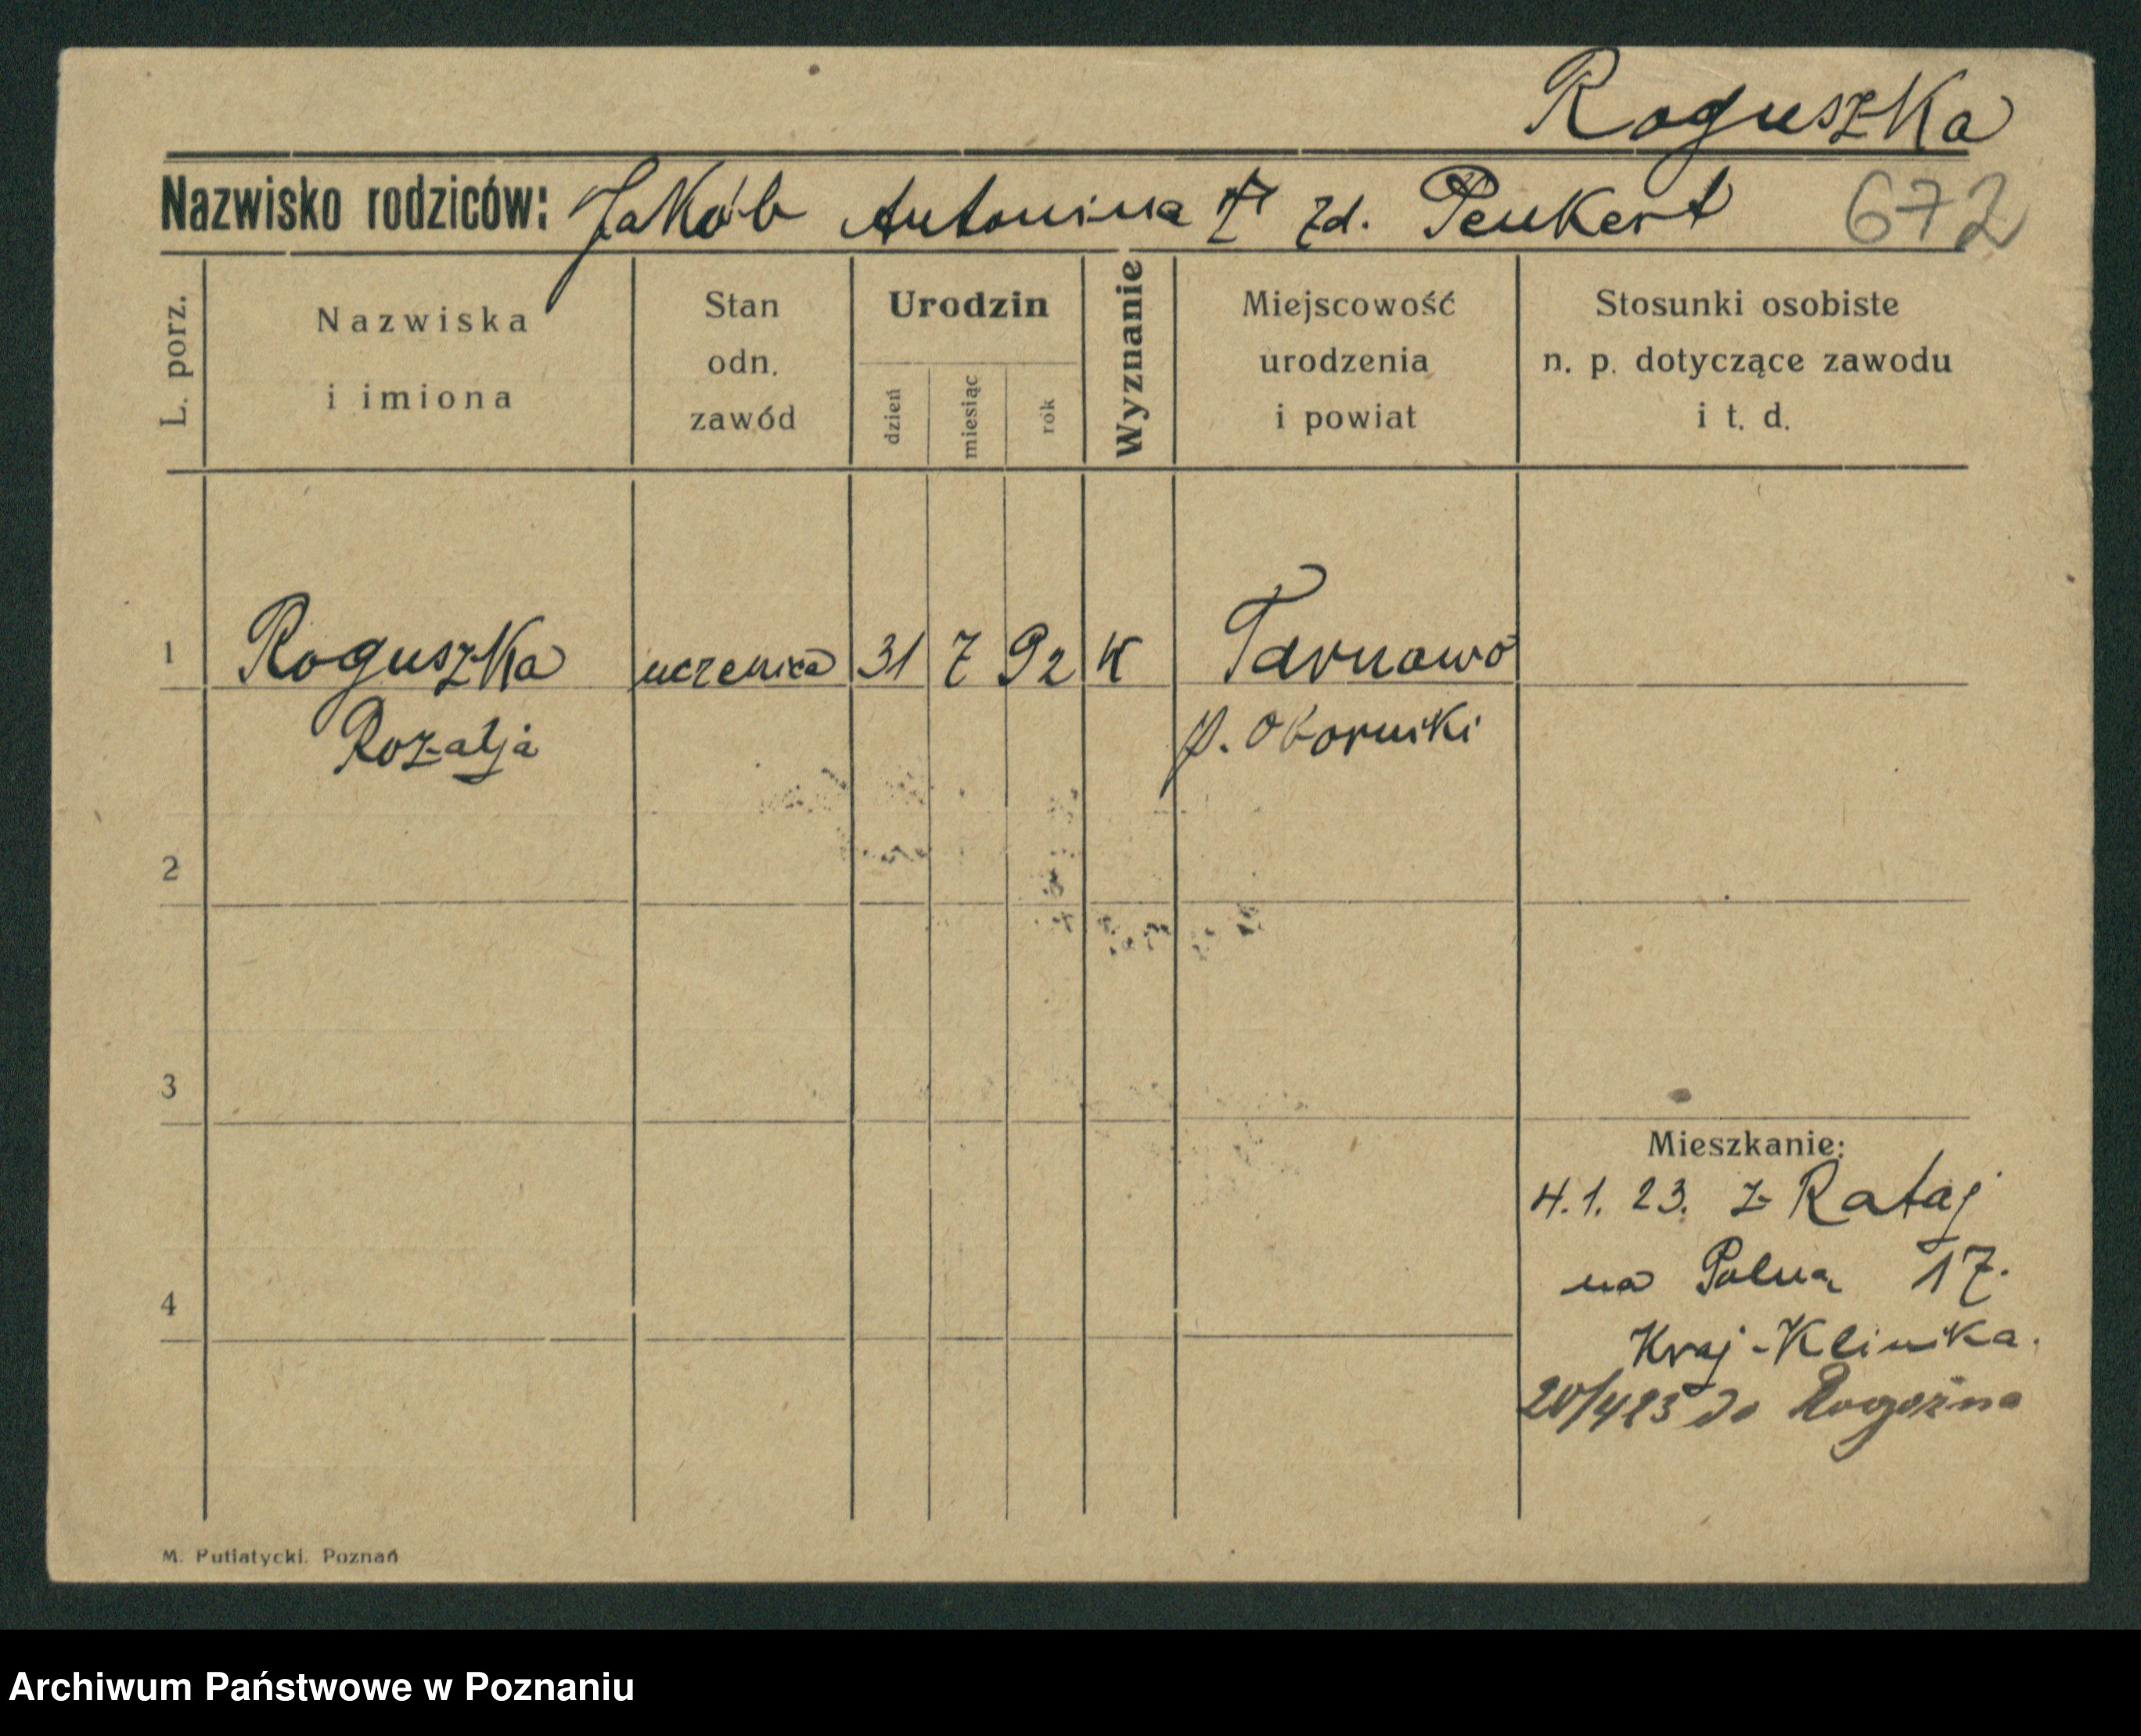 Roguszka
Nazwisko rodziców: Jakób Antonina zd. Peukert 672
L. porz.
Nazwiska
i imiona
Stan
odn.
zawód
Urodzin
dzień
miesiąc
rok
Wyznanie
Miejscowość
urodzenia
i powiat
Stosunki osobiste
n. p. dotyczące zawodu
i t. d.
1 Roguszka uczenica 31 7 92 K Tarnowo
Rozalja p. Oborniki
2
3
Mieszkanie:
4.1.23. z Rataj
na Polną 17.
4
Kraj-Klinika.
20/4 23 do Rogoźna
M. Putiatycki. Poznań
Archiwum Państwowe w Poznaniu